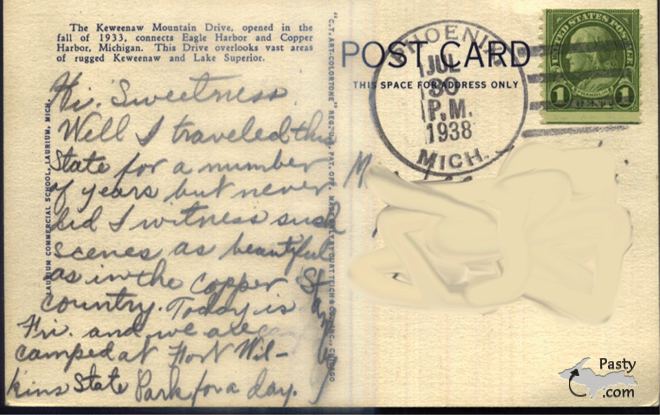 The Keweenaw Mountain Drive, opened in the
fall of 1933, connects Eagle Harbor and Copper
Harbor, Michigan. This Drive overlooks vast areas
of rugged Keweenaw and Lake Superior.
Hi, Sweetness
Well I traveled this
State for a number
of years but never
did I witness such
scenes as beautiful
as in the Copper
country. Today is
Fri. and we are
camped at Fort Wil-
kins State Park for a day.
LAURIUM COMMERCIAL SCHOOL, LAURIUM, MICH.
"C.T. ART-COLORTONE" REG. U.S. PAT. OFF.
POST CARD
THIS SPACE FOR ADDRESS ONLY
PHOENIX
JUL
30
P.M.
1938
MICH.
UNITED STATES POSTAGE
1 CENT 1
M
Pasty
.com